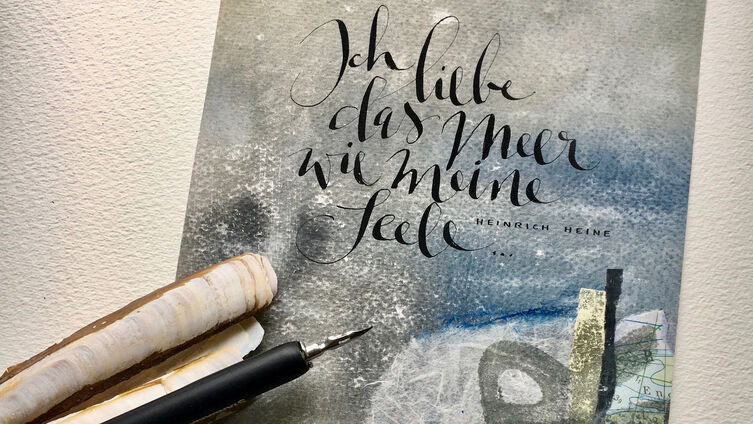 Ich liebe
das Meer
wie meine
Seele...
HEINRICH HEINE
Eng